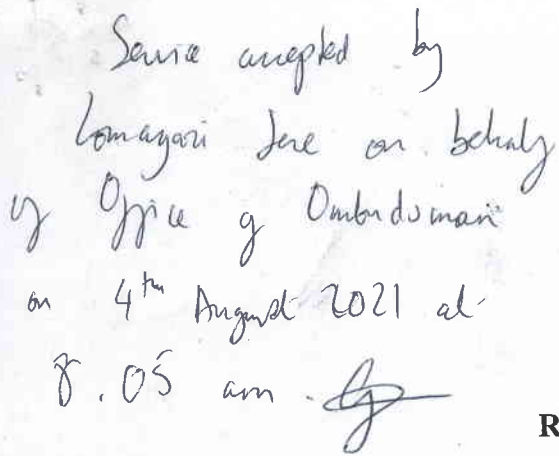 Service accepted by
Lomagozi Jere on behalf
of Office of Ombudsman
on 4th August 2021 at
8.05 am.
R